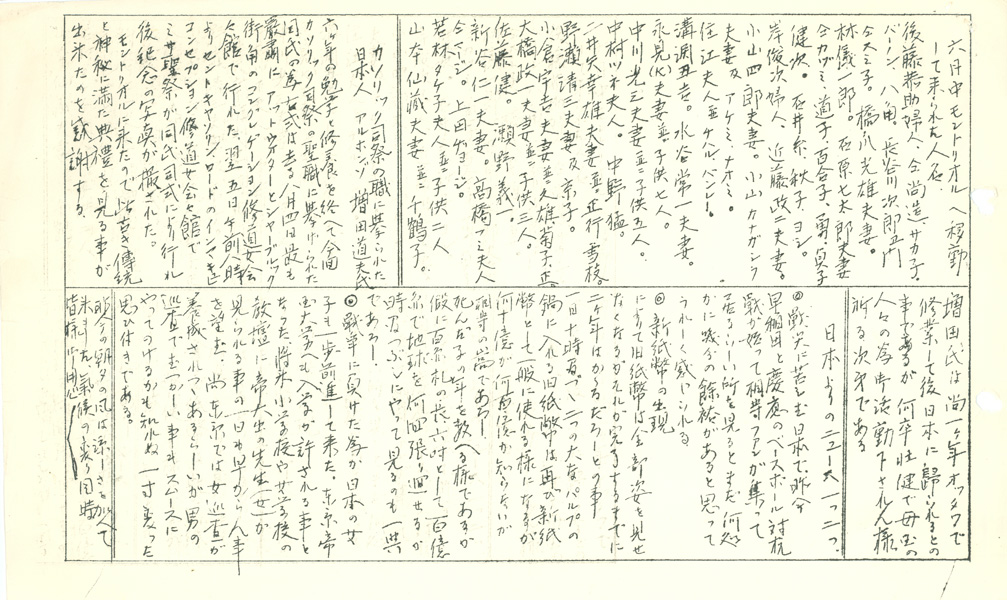 六月中モントリオルへ移動
して来られた人名
後藤恭助婦人、仝尚造、サカ子、
バーン、八角、長谷川次郎五門
今ス三子。橋川光雄夫妻。
林儀一郎。石原七太郎夫妻
仝カガミ、道子、百合子、勇、貞子
岸俊次婦人、近藤政二夫妻。
健次。石井系、秋子、ヨシ。
小山四郎夫妻。小山カナガシク
夫妻及アケミ、ナオミ。
住江夫人並ケハルバンシー。
溝渕丑吉。水谷常一夫妻。
永見(K)夫妻並ニ子供七人。
中川光三夫妻並ニ子供五人。
中村ツネ夫人。中野猛。
二井矢幸雄夫妻並正行、雪枝。
野瀬清三夫妻及京子。
小倉宇吉夫妻並久雄、菊子、正
大橋政一夫妻並子供三人。
佐藤健。瀬野義一。
新谷仁一夫妻。高橋フミ夫人
仝マージ。上田ヂョージ。
若林タケ子夫人並ニ子供二人
山本仙蔵夫妻並ニ千鶴子。
カソリック司祭の職に挙られた
日本人 アルホンソ 増田道夫氏
六ヶ年の勉学と修養を終へて今回
カソリック司祭の聖職に挙けられた
同氏の
厳粛に
街角のコングレゲーション修道女会
々館で行れた。翌五日午前八時
よりセントキャソリンロードのインマキュ
コンセプション修道女会々館で
ミサ聖祭が同氏司式により行れ
後紀念の写真が撮された。
モントリオルに来たので皆古き傳統
と神秘に満た典禮を見る事が
出来たのを感謝する。
増田氏は尚一ヶ年オッタワで
修業して後日本に歸られるとの
事であるが何卒壮健で母国の
人々の為御活動下されん様
祈る次第である
日本よりのニュース一つ二つ。
◎戦災に苦しむ日本で昨今
早稲田と慶應のベースボール対抗
戦が始って相等ファンが集って
居るらしい所を見るとまだ何処
かに幾分の餘裕があると思って
うれしく感じられる
◎新紙幣の出現
によりて旧紙幣は全部姿を見せ
なくなるがそれが完了するまでに
二ヶ年はかゝるだろーとの事
一日十時間づゝ二つの大なパルプの
鍋に入れる旧紙幣は再び新紙
幣と一般に使れる様になるが
何十億か何百億か知らないが
相等の嵩であろー
死んだ子の年を数へる様であるが
仮に百糸札の長六吋として百億
糸で地球を何回張り廻せるか
時間つぶしにやって見るのも一興
であろー
◎戦争に負けた為か日本の女
子も一歩前進して来た。東京帝
国大学へも入学が許される事と
なった。将来小学校や女学校の
教壇に帝大出の先生(女)が
見られる事の一日も早からん事
を望む。尚東京では女巡査が
養成されつゝあるらしいが男の
巡査でむつかしい事もスムースに
やってのけるかも知れぬ一寸変った
思ひ付きである。
昨今の朝夕の風は涼しさを加へて
来ました氣候の変り目時
皆様御用心